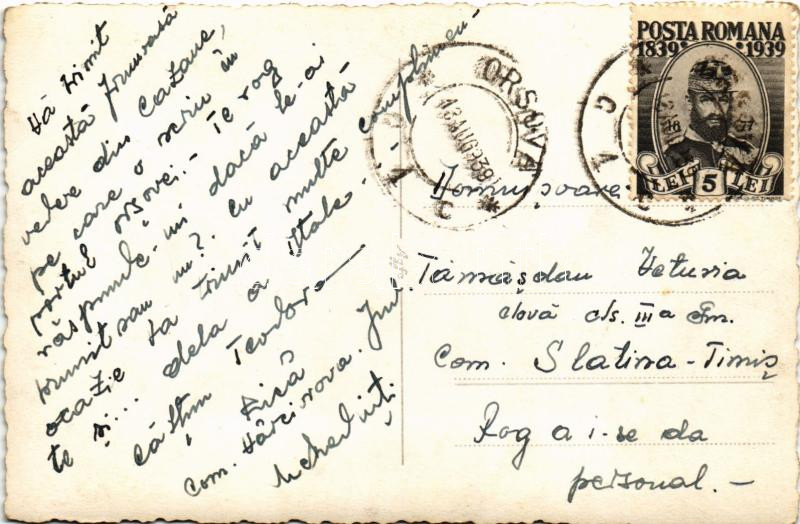 Vă trimit
această frumoasă
vedere din Cazane,
pe care o scriu în
portul Orșovei. - Te rog
răspunde-mi dacă le-ai
primit sau nu? Cu această
ocazie îți trimit multe complimen-
te și... dela a tale -
Teodora
com. Vârciorova. Jud.
Mehedinți
POSTA ROMANA
1839 1939
LEI 5 LEI
ORSOVA
13 AUG 939
Domnișoarei
Tămășdan Veturia
elevă cls. III a Gm.
Com. Slatina-Timiș
Rog a i-se da
personal. -